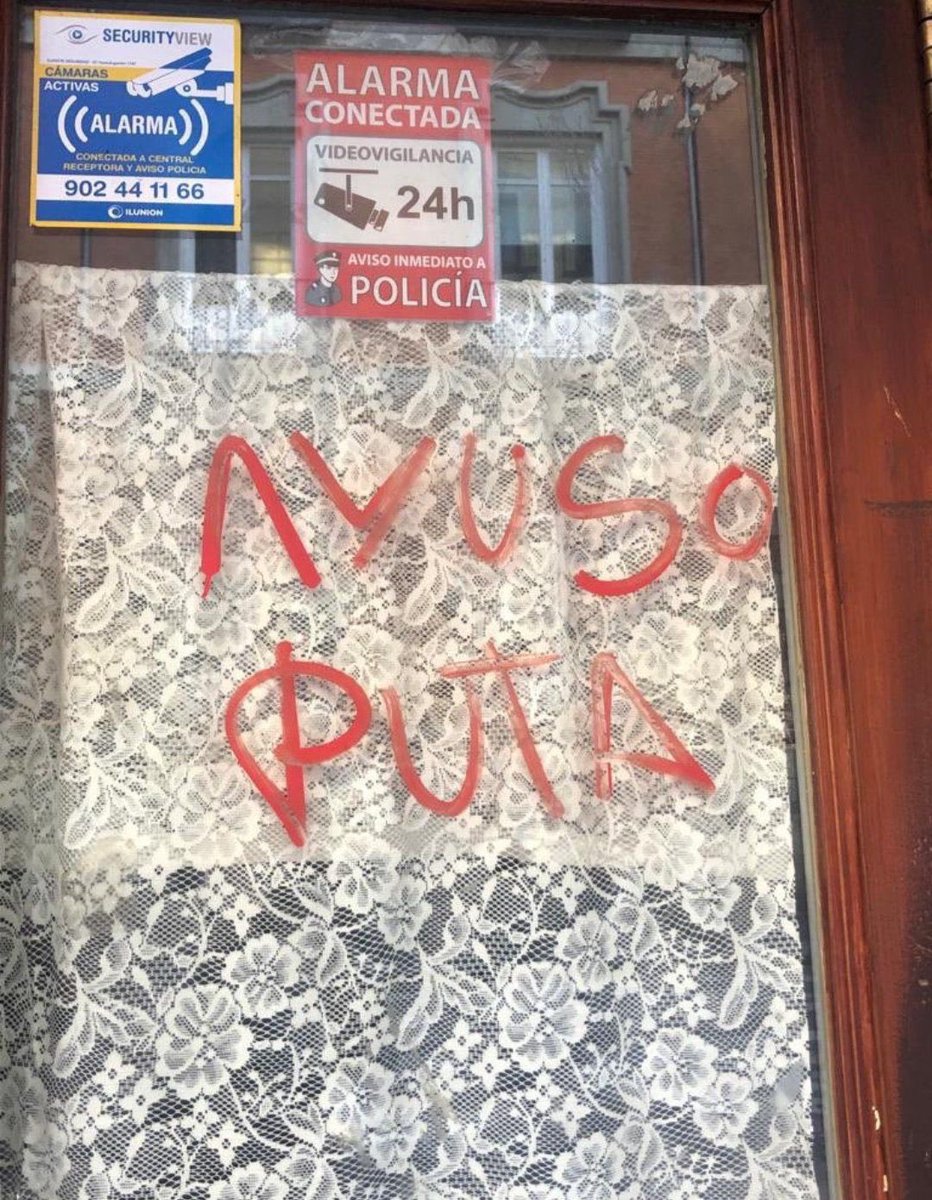 SECURITYVIEW
CÁMARAS
ACTIVAS
ALARMA
CONECTADA A CENTRAL
RECEPTORA Y AVISO POLICIA
902 44 11 66
ILUNION
ALARMA
CONECTADA
VIDEOVIGILANCIA
24h
AVISO INMEDIATO A
POLICÍA
AYUSO
PUTA